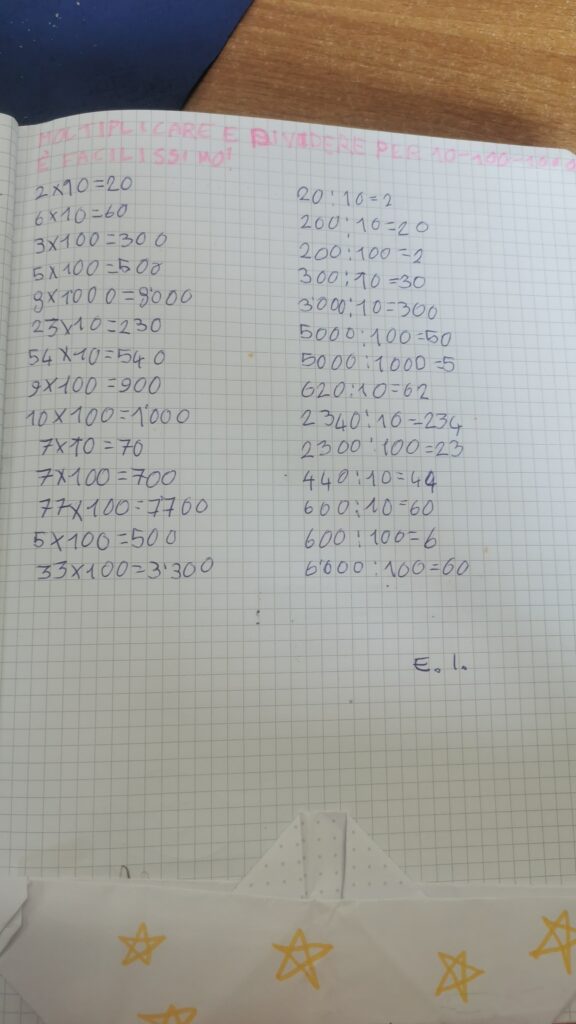 MOLTIPLICARE E DIVIDERE PER 10-100-1000
È FACILISSIMO!
2x10=20
6x10=60
3x100=300
5x100=500
9x1000=9'000
23x10=230
54x10=540
9x100=900
10x100=1'000
7x10=70
7x100=700
77x100=7'700
5x100=500
33x100=3'300
20:10=2
200:10=20
200:100=2
300:10=30
3'000:10=300
5000:100=50
5000:1000=5
620:10=62
2340:10=234
2300:100=23
440:10=44
600:10=60
600:100=6
6'000:100=60
E. I.